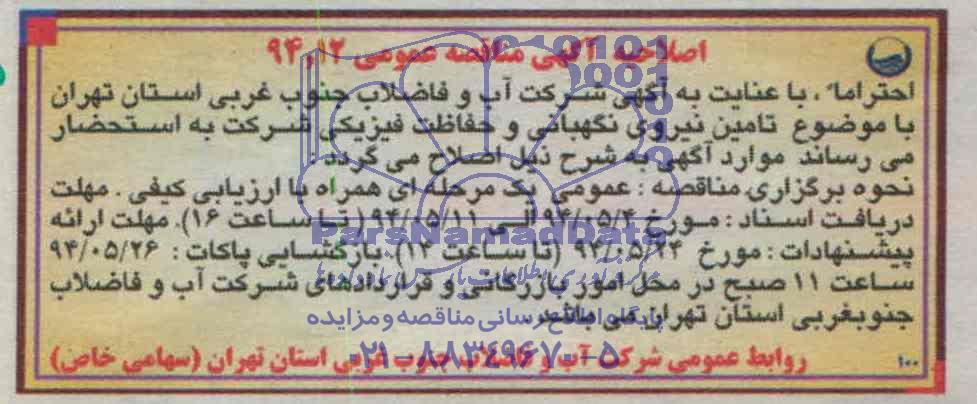 اصلاحیه آگهی مناقصه عمومی ۹۴,۱۲
احتراما ً، با عنایت به آگهی شرکت آب و فاضلاب جنوب غربی استان تهران
با موضوع تامین نیروی نگهبانی و حفاظت فیزیکی شرکت به استحضار
می رساند موارد آگهی به شرح ذیل اصلاح می گردد :
نحوه برگزاری مناقصه : عمومی یک مرحله ای همراه با ارزیابی کیفی . مهلت
دریافت اسناد : مورخ ۹۴/۰۵/۴ الی ۹۴/۰۵/۱۱ ( تا ساعت ۱۶). مهلت ارائه
پیشنهادات : مورخ ۹۴/۰۵/۲۴ (تا ساعت ۱۴). بازگشایی پاکات : ۹۴/۰۵/۲۶
ساعت ۱۱ صبح در محل امور بازرگانی و قراردادهای شرکت آب و فاضلاب
جنوبغربی استان تهران می باشد.
روابط عمومی شرکت آب و فاضلاب جنوب غربی استان تهران (سهامی خاص)
۱۰۰
ParsNamadData
پایگاه اطلاع رسانی مناقصه و مزایده
۰۲۱-۸۸۳۴۹۶۷۰-۵